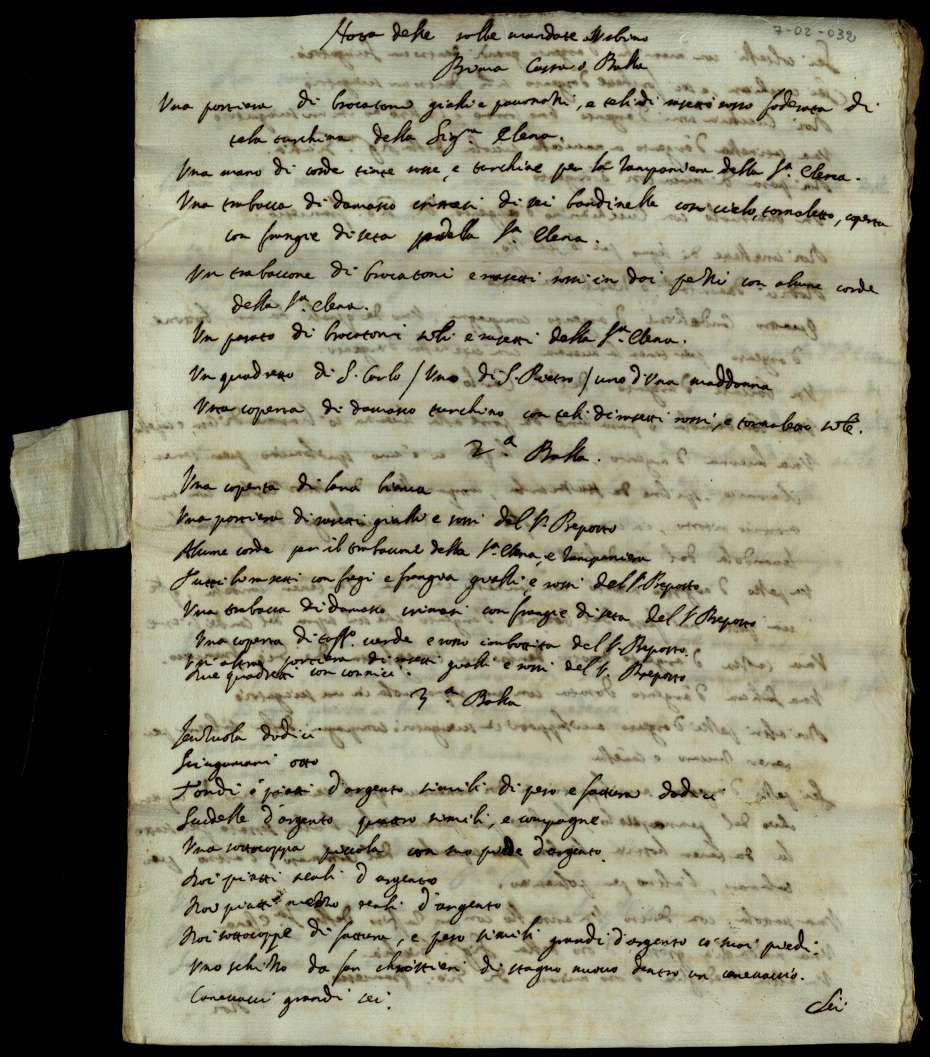 7-02-032
Nota delle robbe mandate a Urbino
Prima Cassa o Balla
Una portiera di brocatone gialli e pauonazzi, e teli di rasetti rossi foderata di
tela turchina della Sig.ra Elena.
Una mano di corde tinte rosse, e turchine per la Zampaniera della S.ra Elena.
Una trabacca di damasco cremesi di sei bandinelle con cielo, tornaletto, coperta
con frangie di seta della S.ra Elena.
Un trabaccone di brocatoni e rasetti rossi in doi pezzi con alcune corde
della S.ra Elena.
Un parato di brocatoni soli e rasetti della S.ra Elena.
Un quadretto di S. Carlo / Uno di S. Pietro / uno d'Una maddonna
Una coperta di damasco turchino con teli di rasetti rossi, e tornaletto sole.
2.a Balla.
Una coperta di lana bianca
Una portiera di rasetti gialli e rossi del S.r Preposto
Alcune corde per il trabaccone della S.ra Elena, e Zampaniera
Tutti li rasetti con fregi e frangia gialli e rossi del S.r Preposto
Una trabacca di damasco cremesi con frangie di seta del S.r Preposto
Una coperta di taff.o verde e rosso imbottita del S.r Preposto.
Un altra portiera di rasetti gialli e rossi del S.r Preposto
Due quadretti con cornici.
3.a Balla
Lenzuola dodici
Sciugamani otto
Tondi ò piatti d'argento simili di peso e fattura dodici
Scudelle d'argento quattro simili, e compagne
Una sottocoppa piccola con suo piede d'argento
Doi piatti reali d'argento
Doi piatti mezzo reali d'argento
Doi sottocoppe di fattura, e peso simili grandi d'argento co' suoi piedi.
Uno schizzo da far christieri di stagno nuovo dentro un caneuaccio.
Caneuacci grandi sei.
Sei